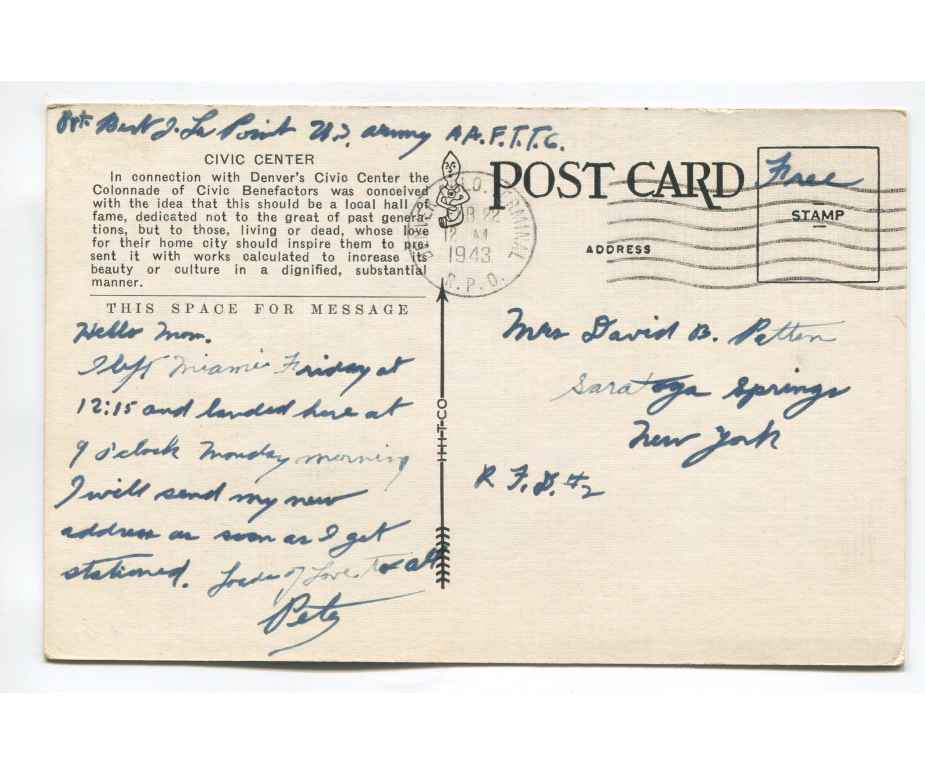 Pvt. Bert J. La Point U.S. Army A.A.F.T.T.C.
CIVIC CENTER
In connection with Denver's Civic Center the
Colonnade of Civic Benefactors was conceived
with the idea that this should be a local hall of
fame, dedicated not to the great of past genera-
tions, but to those, living or dead, whose love
for their home city should inspire them to pre-
sent it with works calculated to increase its
beauty or culture in a dignified, substantial
manner.
THIS SPACE FOR MESSAGE
Hello Mom.
I left Miami Friday at
12:15 and landed here at
9 o'clock Monday morning
I will send my new
address as soon as I get
stationed. Loads of Love to all
Pete
COLO. TERMINAL
22
12 AM
1943
R.P.O.
POST CARD
Free
STAMP
ADDRESS
Mrs David B. Patten
Saratoga Springs
New York
R.F.D. #2